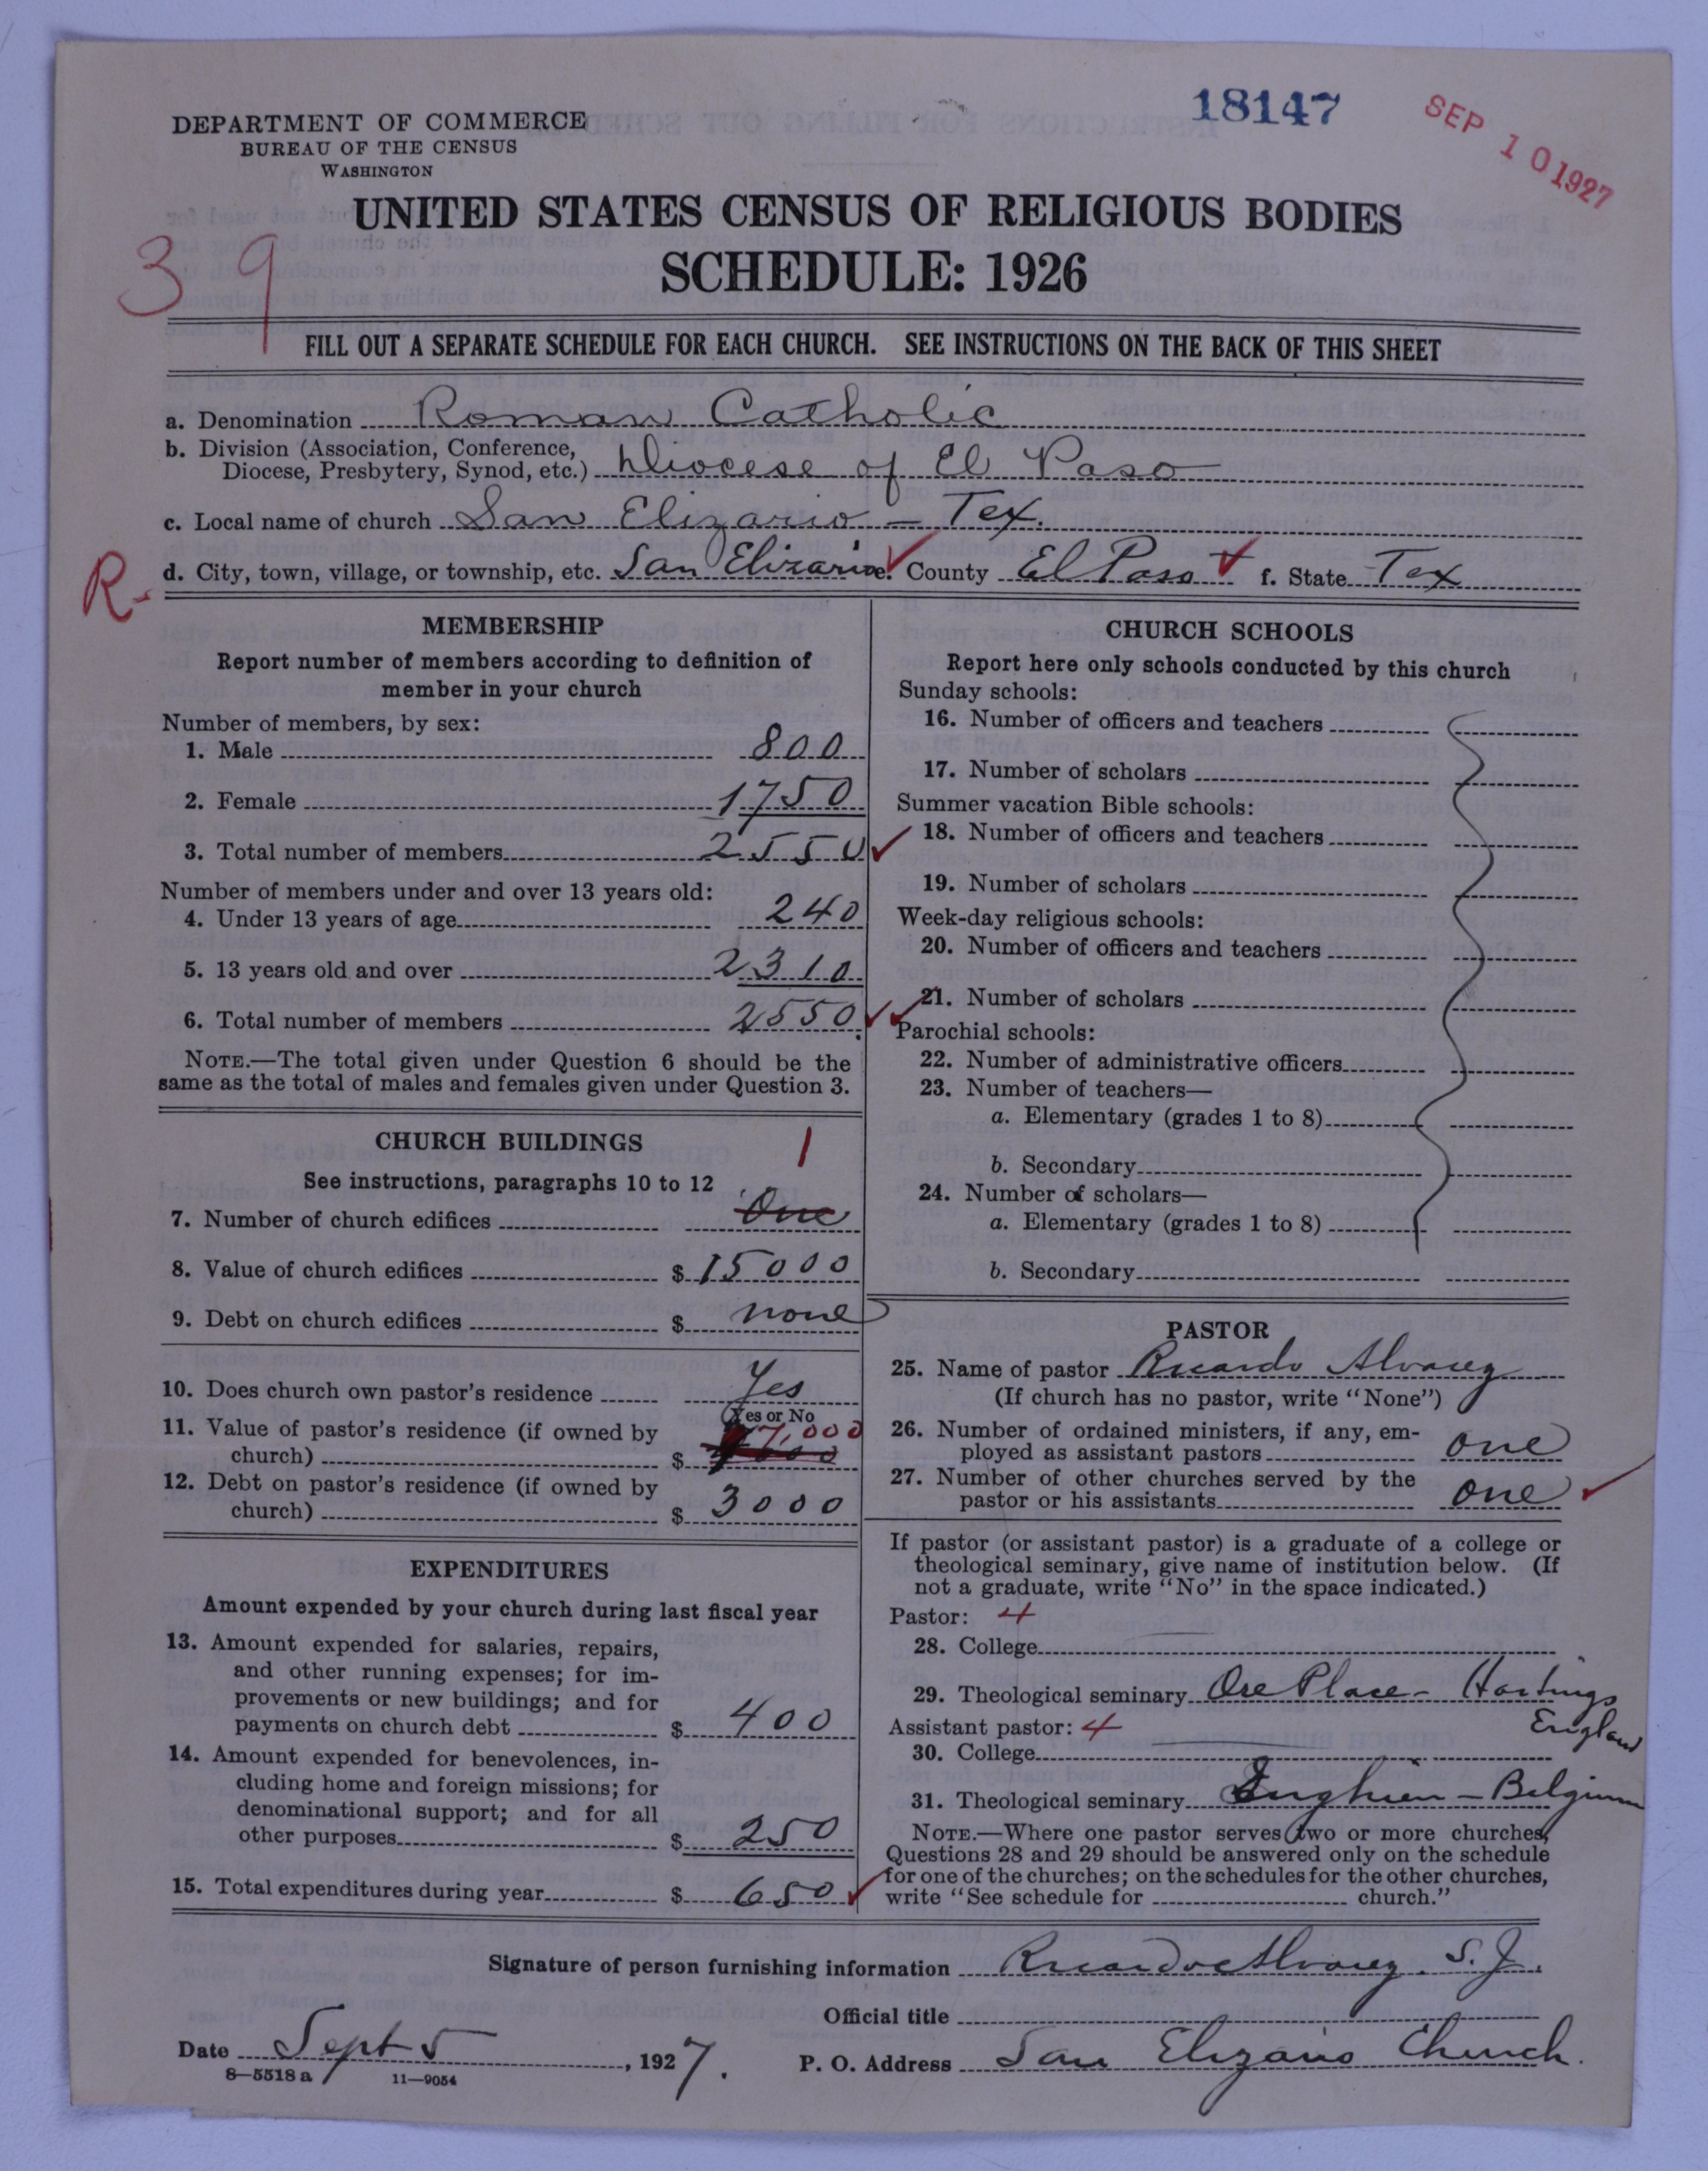 18147
SEP 10 1927
DEPARTMENT OF COMMERCE
BUREAU OF THE CENSUS
WASHINGTON
UNITED STATES CENSUS OF RELIGIOUS BODIES
SCHEDULE: 1926
39
FILL OUT A SEPARATE SCHEDULE FOR EACH CHURCH. SEE INSTRUCTIONS ON THE BACK OF THIS SHEET
a. Denomination Roman Catholic
b. Division (Association, Conference,
Diocese, Presbytery, Synod, etc.) Diocese of El Paso
c. Local name of church San Elizario - Tex.
R- d. City, town, village, or township, etc. San Elizario e. County El Paso f. State Tex
MEMBERSHIP
Report number of members according to definition of
member in your church
Number of members, by sex:
1. Male 800
2. Female 1750
3. Total number of members 2550
Number of members under and over 13 years old:
4. Under 13 years of age 240
5. 13 years old and over 2310
6. Total number of members 2550.
NOTE.—The total given under Question 6 should be the
same as the total of males and females given under Question 3.
CHURCH BUILDINGS 1
See instructions, paragraphs 10 to 12
7. Number of church edifices One
8. Value of church edifices $ 15000
9. Debt on church edifices $ none
10. Does church own pastor's residence Yes
(Yes or No
11. Value of pastor's residence (if owned by 7,000
church) $
12. Debt on pastor's residence (if owned by
church) $ 3000
EXPENDITURES
Amount expended by your church during last fiscal year
13. Amount expended for salaries, repairs,
and other running expenses; for im-
provements or new buildings; and for
payments on church debt $ 400
14. Amount expended for benevolences, in-
cluding home and foreign missions; for
denominational support; and for all
other purposes $ 250
15. Total expenditures during year $ 650
CHURCH SCHOOLS
Report here only schools conducted by this church
Sunday schools:
16. Number of officers and teachers
17. Number of scholars
Summer vacation Bible schools:
18. Number of officers and teachers
19. Number of scholars
Week-day religious schools:
20. Number of officers and teachers
21. Number of scholars
Parochial schools:
22. Number of administrative officers
23. Number of teachers—
a. Elementary (grades 1 to 8)
b. Secondary
24. Number of scholars—
a. Elementary (grades 1 to 8)
b. Secondary
PASTOR
25. Name of pastor Ricardo Alvarez
(If church has no pastor, write "None")
26. Number of ordained ministers, if any, em-
ployed as assistant pastors one
27. Number of other churches served by the
pastor or his assistants one
If pastor (or assistant pastor) is a graduate of a college or
theological seminary, give name of institution below. (If
not a graduate, write "No" in the space indicated.)
Pastor: 4
28. College
29. Theological seminary Ore Place - Hastings
England
Assistant pastor: 4
30. College
31. Theological seminary Enghien - Belgium
NOTE.—Where one pastor serves two or more churches,
Questions 28 and 29 should be answered only on the schedule
for one of the churches; on the schedules for the other churches,
write "See schedule for church."
Signature of person furnishing information Ricardo Alvarez. S. J.
Official title
Date Sept 5, 1927. P. O. Address San Elizario Church.
8—5518 a 11—9054